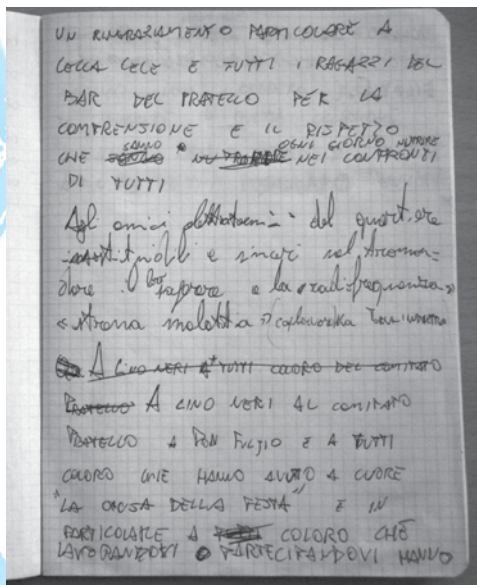 UN RINGRAZIAMENTO PARTICOLARE A
LELLA LELE E TUTTI I RAGAZZI DEL
BAR DEL PRATELLO PER LA
COMPRENSIONE E IL RISPETTO
SANNO OGNI GIORNO NUTRIRE
CHE NEI CONFRONTI
DI TUTTI
Agli amici del quartiere
e sinceri nel
il loro sapore e la «radiofrequenza»
«strana malattia»
A LINO NERI E A TUTTI COLORO DEL COMITATO
PRATELLO A LINO NERI AL COMITATO
PRATELLO A DON FULGIO E A TUTTI
COLORO CHE HANNO AVUTO A CUORE
"LA CAUSA DELLA FESTA" E IN
PARTICOLARE A COLORO CHE
LAVORANDOVI O PARTECIPANDOVI HANNO